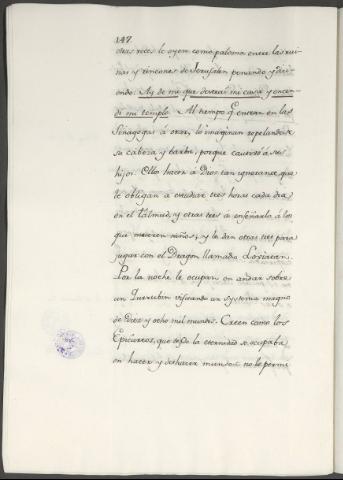 147
otras veces le oyen como paloma entre las rui-
nas y rincones de Jerusalen penando y dici-
endo: Ay de mi que deverè mi casa y encen-
di mi templo. Al tiempo q. entran en las
Sinagogas à orar, lo imaginan repelandose
su cabeza y barba, porque cautivó á sus
hijos. Ellos hacen à Dios tan ignorante que
le obligan à estudiar tres horas cada dia
en el talmud, y otras tres à enseñarlo à los
que mueren niños; y le dan otras tres para
jugar con el Dragon llamado Leviatan.
Por la noche le ocupan en andar sobre
un Querubin visitando un systema magno
de Diez y ocho mil mundos. Creen como los
Epicureos, que desde la eternidad se ocupaba
en hacer y deshacer mundos: no le permi